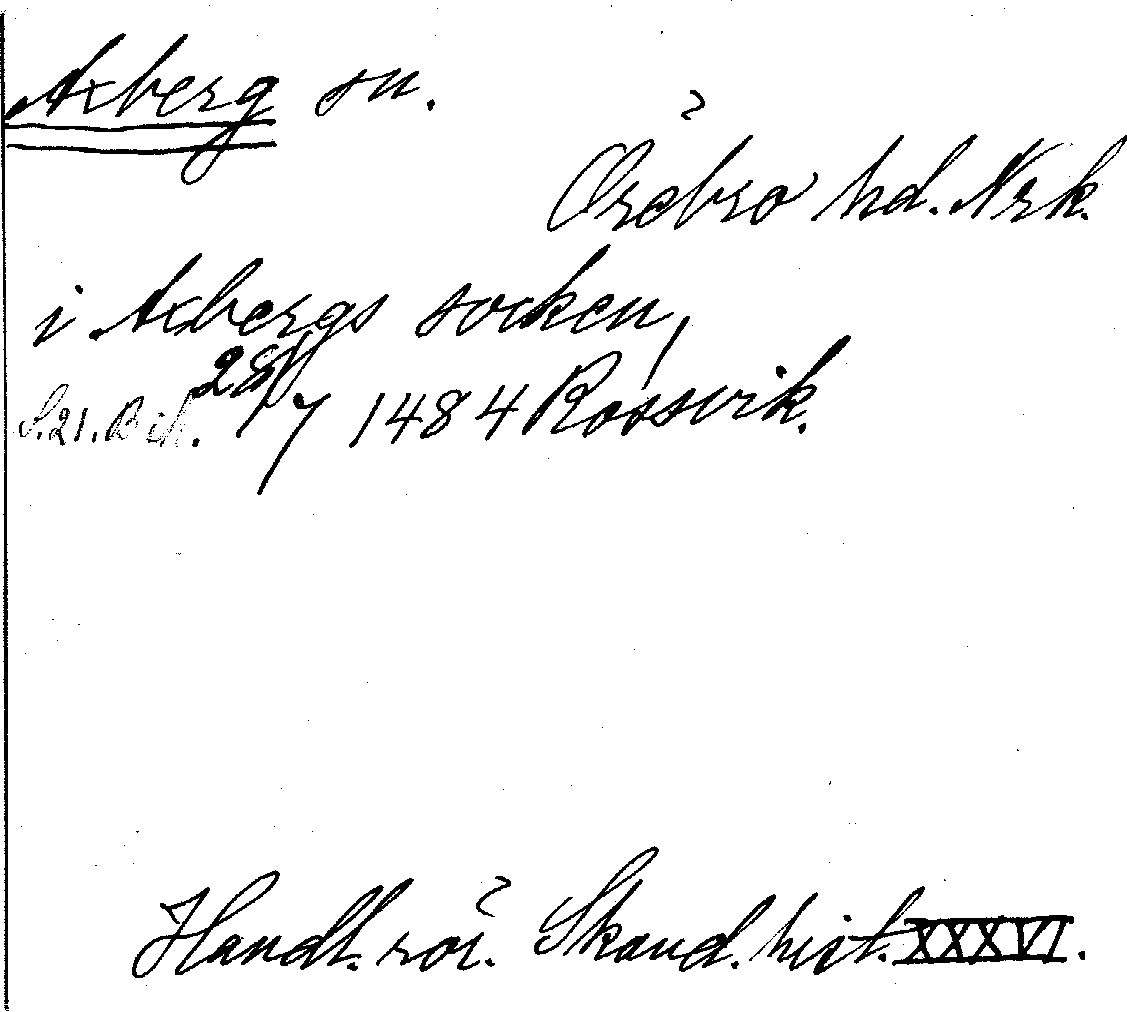 Axberg sn.
Örebro hd. Nrk.
i Axbergs socken,
S. 21. Bih. 28/7 1484 Rossvik.
Handl. rör. Skand. hist. XXXVI.